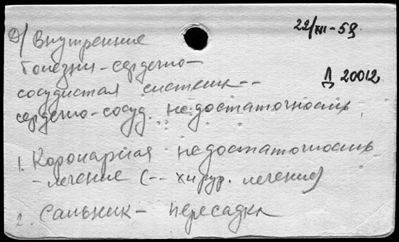 Д/ Внутренние
болезни - сердечно-
сосудистая система --
сердечно-сосуд. недостаточность
22/XII-59
Д 20012
1. Коронарная недостаточность
- лечение (-- хирур. лечение)
2. Сальник - пересадка